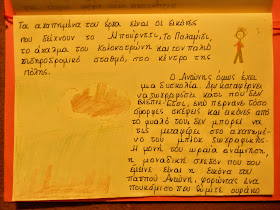 Τα αγαπημένα του έργα είναι οι εικόνες
που δείχνουν το Μπούρτζι, το Παλαμήδι,
το άγαλμα του Κολοκοτρώνη και τον παλιό
σιδηροδρομικό σταθμό, στο κέντρο της
πόλης.
Ο Αντώνης όμως έχει
μια δυσκολία. Δεν καταφέρνει
να ζωγραφίσει κάτι που δεν
βλέπει. Έτσι, ενώ περνάνε τόσο
όμορφες σκέψεις και εικόνες από
το μυαλό του, δεν μπορεί να
τις μεταφέρει στο αγαπημέ-
νο του μπλοκ ζωγραφικής.
Η μόνη του ωραία ανάμνηση,
η μοναδική σχεδόν που του
έμεινε είναι η εικόνα του
παππού Αντώνη, φορώντας ένα
πουκάμισο που θύμιζε ουρανό